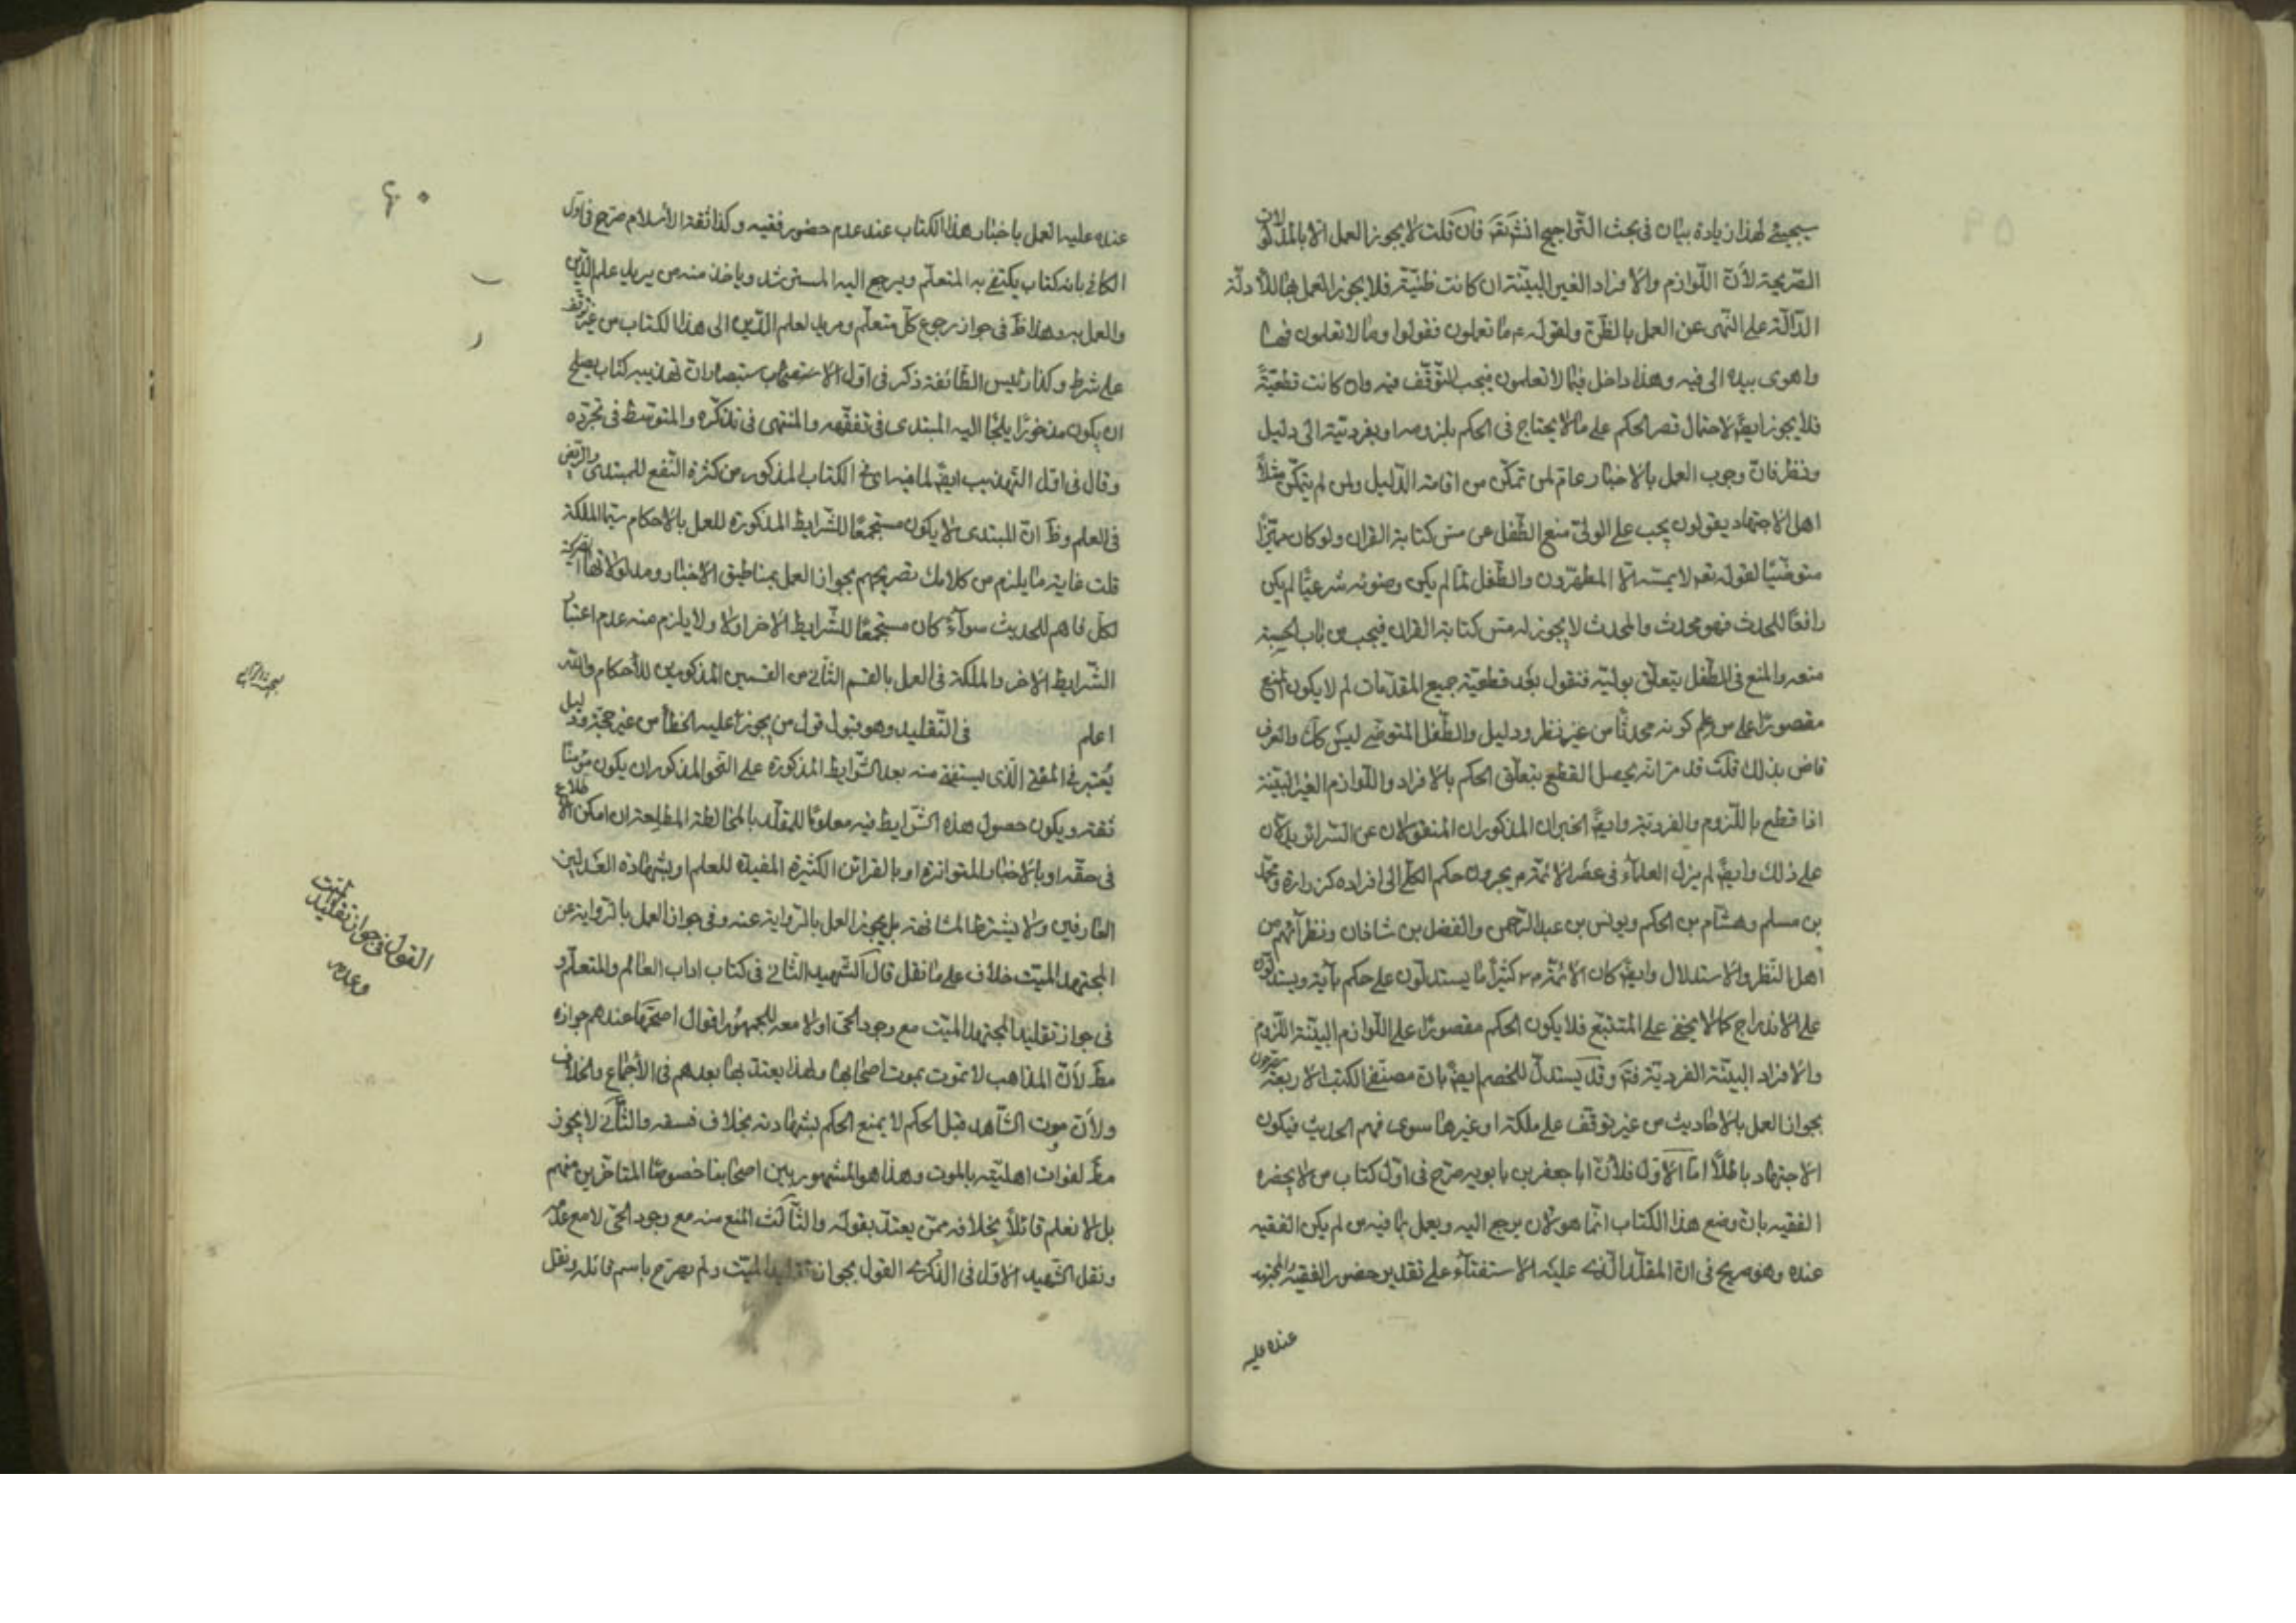 سيجيئ لهذا زيادة بيان في بحث التراجيح انش تقر فان قلت لا يجوز العمل الا بالمدلولات
الصريحة لأن اللوازم والافراد الغير البينة ان كانت ظنية فلا يجوز العمل بها للأدلة
الدالة على النهى عن العمل بالظن ولقوله ع ما تعلمون فقولوا وما لا تعلمون فها
واهوى بيده الى فيه وهذا داخل فيما لا تعلمون فيجب التوقف فيه وان كانت قطعية
فلا يجوز ايضا لاحتمال قصر الحكم على ما لا يحتاج في الحكم بلزومه او بفرديته الى دليل
ونظر فان وجوب العمل بالاخبار عام لمن تمكن من اقامة الدليل ولمن لم يتمكن مثلا
اهل الاجتهاد يقولون يجب على الولى منع الطفل عن مس كتابة القران ولو كان مميزا
متوضئا لقوله تعر لا يمسه الا المطهرون والطفل لما لم يكن وضوئه شرعيا لم يكن
رافعا للحدث فهو محدث والمحدث لا يجوز له مس كتابة القران فيجب من باب الحسبة
منعه والمنع في الطفل يتعلق بوليه فنقول بعد قطعية جميع المقدمات لم لا يكون المنع
مقصورا على من علم كونه محدثا من غير نظر ودليل والطفل المتوضى ليس كك والعرف
قاض بذلك قلت قد مر انه يحصل القطع بتعلق الحكم بالافراد واللوازم الغير البينة
اذا قطع باللزوم والفردية وايضا الخبران المذكوران المنقولان عن السرائر يدلان
على ذلك وايضا لم يزل العلماء في عصر الائمة م يجرون حكم الكلى الى افراده كزرارة ومحمد
بن مسلم وهشام بن الحكم ويونس بن عبد الرحمن والفضل بن شاذان ونظرائهم من
اهل النظر والاستدلال وايضا كان الائمة م كثيرا ما يستدلون على حكم باية ويستدلون
على الاندراج كما لا يخفى على المتتبع فلا يكون الحكم مقصورا على اللوازم البينة اللزوم
والافراد البينة الفردية فتم وقد يستدل للخصم ايضا بان مصنفى الكتب الاربعة يصرحون
بجواز العمل بالاحاديث من غير توقف على ملكة او غيرها سوى فهم الحديث فيكون
الاجتهاد باطلا اما الاول فلأن ابا جعفر بن بابويه صرح في اول كتاب من لا يحضره
الفقيه بان وضع هذا الكتاب انما هو لان يرجع اليه ويعمل بما فيه من لم يكن الفقيه
عنده وهو صريح في ان المقلد الذى عليه الاستفتاء على تقدير حضور الفقيه
عنده عليه
٦٠
عنده عليه العمل باخبار هذا الكتاب عند عدم حضور فقيه وكذا ثقة الاسلام صرح في اول
الكافي بانه كتاب يكتفى به المتعلم ويرجع اليه المسترشد وياخذ منه من يريد علم الدين
والعمل به وهذا ظ في جواز رجوع كل متعلم ومريد لعلم الدين الى هذا الكتاب من غير توقف
على شرط وكذا رئيس الطائفة ذكر في اول الاستبصار ان تهذيبه كتاب يصلح
ان يكون مذخورا يلجأ اليه المبتدى في تفقهه والمنتهى في تذكره والمتوسط في تبحره
وقال في اول التهذيب ايضا لما فيه اى في الكتاب المذكور من كثرة النفع للمبتدى والريض
في العلم وظ ان المبتدى لا يكون مستجمعا للشرايط المذكورة للعمل بالاحكام سيما الملكة
قلت غاية ما يلزم من كلامك تصريحهم بجواز العمل بمناطيق الاخبار ومدلولاتها الصريحة
لكل فاهم للحديث سواء كان مستجمعا للشرايط الاخر او لا ولا يلزم منه عدم اعتبار
الشرايط الاخر والملكة في العمل بالقسم الثاني من القسمين المذكورين للأحكام والله
اعلم في التقليد وهو قبول قول من يجوز عليه الخطأ من غير حجة ودليل
يعتبر في المفتى الذى يستفتى منه بعد الشرايط المذكورة على النحو المذكور ان يكون مؤمنا
ثقة ويكون حصول هذه الشرايط فيه معلوما للمقلد بالمخالطة المطلعة ان امكن الاطلاع
في حقه او بالاخبار المتواترة او بالقرائن الكثيرة المفيدة للعلم او بشهادة العدلين
العارفين ولا يشترط المشافهة بل يجوز العمل بالرواية عنه وفي جواز العمل بالرواية عن
المجتهد الميت خلاف على ما نقل قال الشهيد الثاني في كتاب اداب العالم والمتعلم و
في جواز تقليد المجتهد الميت مع وجود الحى او لا معه للجمهور اقوال اصحها عندهم جوازه
مط لأن المذاهب لا تموت بموت اصحابها ولهذا يعتد بها بعدهم في الأجماع والخلاف
ولأن موت الشاهد قبل الحكم لا يمنع الحكم بشهادته بخلاف فسقه والثاني لا يجوز
مط لفوات اهليته بالموت وهذا هو المشهور بين اصحابنا خصوصا المتاخرين منهم
بل لا نعلم قائلا بخلافه ممن يعتد بقوله والثالث المنع منه مع وجود الحى لا مع عدمه
ونقل الشهيد الاول في الذكرى القول بجواز تقليد الميت ولم يصرح باسم قائله ونقل
القول في جواز تقليد الميت
وعدمه